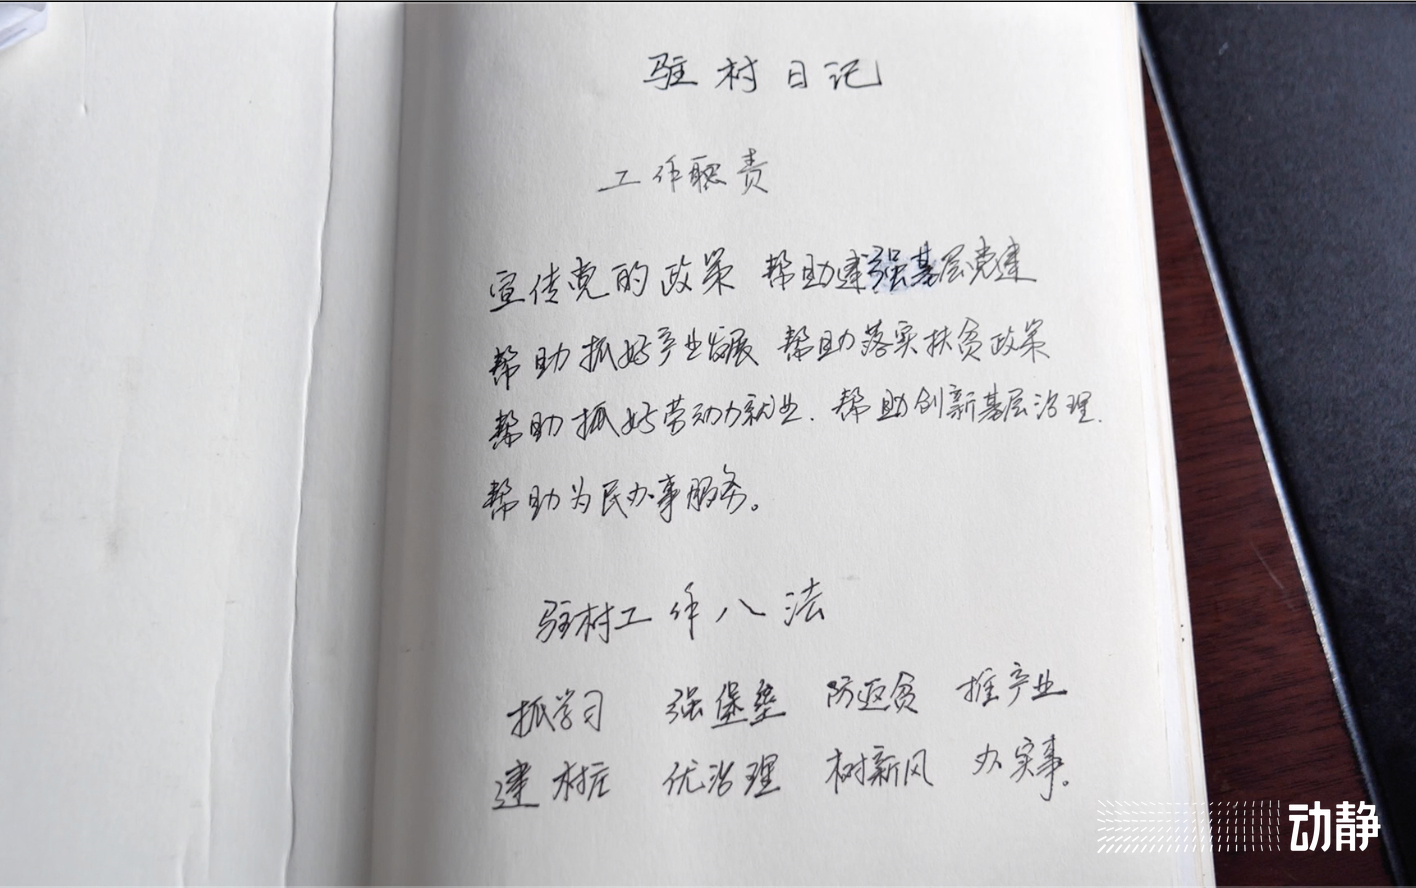 驻村日记
工作职责
宣传党的政策 帮助建强基层党建
帮助抓好产业发展 帮助落实扶贫政策
帮助抓好劳动力就业. 帮助创新基层治理.
帮助为民办事服务。
驻村工作八法
抓学习 强堡垒 防返贫 推产业
建村庄 优治理 树新风 办实事。
动静